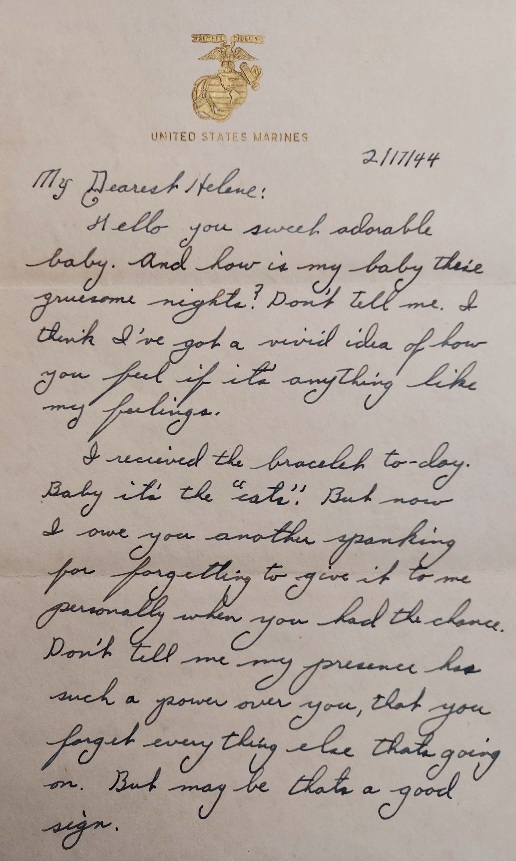 UNITED STATES MARINES
2/17/44
My Dearest Helene:
Hello you sweet adorable
baby. And how is my baby these
gruesome nights? Don't tell me. I
think I've got a vivid idea of how
you feel if it's anything like
my feelings.
I recieved the bracelet to-day.
Baby it's the "cats". But now
I owe you another spanking
for forgetting to give it to me
personally when you had the chance.
Don't tell me my presence has
such a power over you, that you
forget every thing else thats going
on. But may be thats a good
sign.